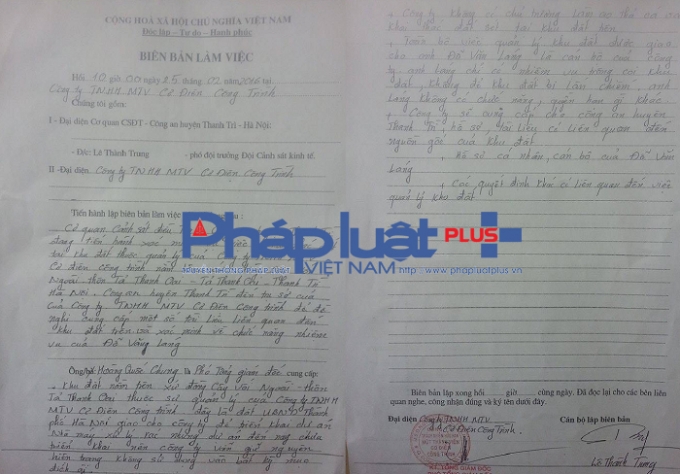 CỘNG HOÀ XÃ HỘI CHỦ NGHĨA VIỆT NAM
Độc lập – Tự do – Hạnh phúc
BIÊN BẢN LÀM VIỆC
Hồi 10 giờ 00 ngày 25 tháng 02 năm 2016 tại
Công ty TNHH MTV Cơ Điện Công Trình
Chúng tôi gồm:
I - Đại diện Cơ quan CSĐT - Công an huyện Thanh Trì - Hà Nội:
- Đ/c: Lê Thành Trung - phó đội trưởng Đội Cảnh sát kinh tế.
II - Đại diện Công ty TNHH MTV Cơ Điện Công Trình
Tiến hành lập biên bản làm việc
Cơ quan Cảnh sát điều
đang tiến hành xác
tại khu đất thuộc quản lý của Công ty
Cơ điện công trình nằm
Ngoài - thôn Tả Thanh Oai - Tả Thanh Oai - Thanh Trì
Hà Nội. Công an huyện Thanh Trì
của Công ty TNHH MTV Cơ Điện Công trình đã đề
nghị cung cấp một số tài liệu liên quan đến
khu đất trên và xác minh về chức năng nhiệm
vụ của Đỗ Văn Lang
Ông/bà: Hoàng Quốc Chung là Phó Tổng giám đốc cung cấp:
- Khu đất nằm trên xứ đồng Cây Vối Ngoài - thôn
Tả Thanh Oai thuộc sự quản lý của Công ty TNHH
MTV Cơ Điện Công trình đây là đất UBND Thành
phố Hà Nội giao cho công ty để triển khai dự án
Nhà máy xử lý rác nhưng dự án đến nay chưa
triển khai nên công ty vẫn giữ nguyên
hiện trạng không sử dụng vào bất kỳ mục
đích gì
+ Công ty không có chủ trương
khu đất
+ Toàn bộ việc quản lý khu đất được giao
cho anh Đỗ Văn Lang là cán bộ của Công
ty anh Lang chỉ có nhiệm vụ trông coi khu
đất, không để khu đất bị lấn chiếm, anh
Lang không có chức năng, quyền hạn gì khác
+ Công ty sẽ cung cấp cho công an huyện
Thanh Trì, hồ sơ, tài liệu có liên quan đến
nguồn gốc của khu đất
+ Hồ sơ cá nhân, cán bộ của Đỗ Văn
Lang
+ Các quyết định khác có liên quan đến việc
quản lý khu đất
Pháp luật PLUS
TRUYỀN THÔNG PHÁP LUẬT VIỆT NAM - http://www.phapluatplus.vn
Biên bản làm việc xong hồi giờ cùng ngày. Đã đọc lại cho các bên liên
quan nghe, công nhận đúng và ký tên dưới đây.
Đại diện Công ty TNHH MTV
Cơ Điện Công Trình
Cán bộ lập biên bản
Lê Thành Trung